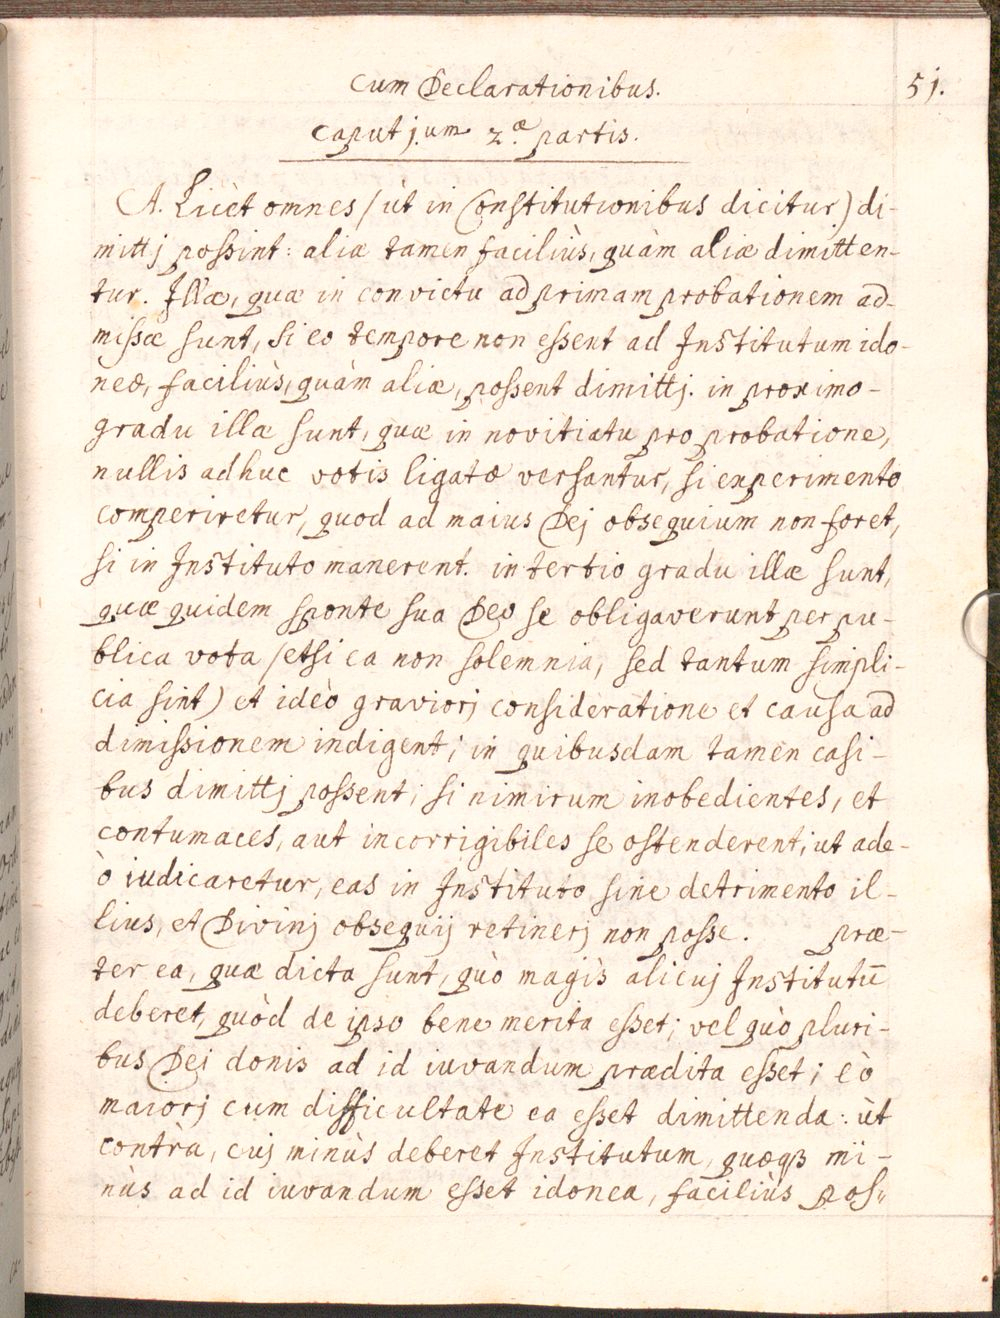 Cum Declarationibus. 51.
Caput j.um 2.æ partis.
A. Licèt omnes (ùt in Constitutionibus dicitur) di-
mittj possint: aliæ tamen faciliùs, quàm aliæ dimitten-
tur. Illæ, quæ in convictu ad primam probationem ad-
missæ sunt, si eo tempore non essent ad Institutum ido-
neæ, faciliùs, quàm aliæ, possent dimittj. in proximo-
gradu illæ sunt, quæ in novitiatu pro probatione,
nullis adhuc votis ligatæ versantur, si experimento
comperiretur, quod ad maius Dej obsequium non foret,
si in Instituto manerent. in tertio gradu illæ sunt,
quæ quidem sponte sua Deo se obligaverunt per pu-
blica vota (etsi ea non solemnia, sed tantum simpli-
cia sint) et ideò graviorj consideratione et causa ad
dimissionem indigent; in quibusdam tamen casi-
bus dimittj possent; si nimirum inobedientes, et
contumaces, aut incorrigibiles se ostenderent, ut ade-
ò iudicaretur, eas in Instituto sine detrimento il-
lius, et Divinj obsequij retinerj non posse. præ-
ter ea, quæ dicta sunt, quò magis alicuj Institutū
deberet, quòd de ipso bene merita esset; vel quò pluri-
bus Dei donis ad id iuvandum prædita esset; eò
maiorj cum difficultate ea esset dimittenda: ùt
contrà, cuj minùs deberet Institutum, quæqȝ mi-
nùs ad id iuvandum esset idonea, faciliùs pos-